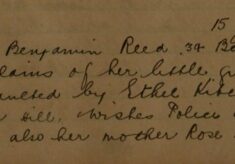 15
Benjamin Reed 34 Be
laims of her little g
ulted by Ethel Kibe
sill. Wishes Police
also her mother Rose